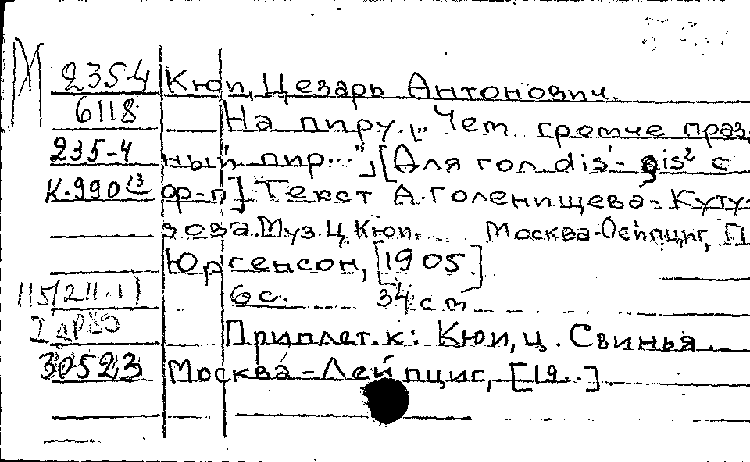 М
235-4 Кюи, Цезарь Антонович
6118 На пиру. „Чем громче праз
235-4 ный пир...", [Для гол. dis'- gis² с
К-990 ф-п]. Текст А. Голенищева-Куту-
зова. Муз. Ц. Кюи. Москва-Лейпциг, П.
Юргенсон, [1905]
115(211.1) 6 с. 34 см
Приплет. к: Кюи, Ц. Свинья.
30523 Москва-Лейпциг, [19..].